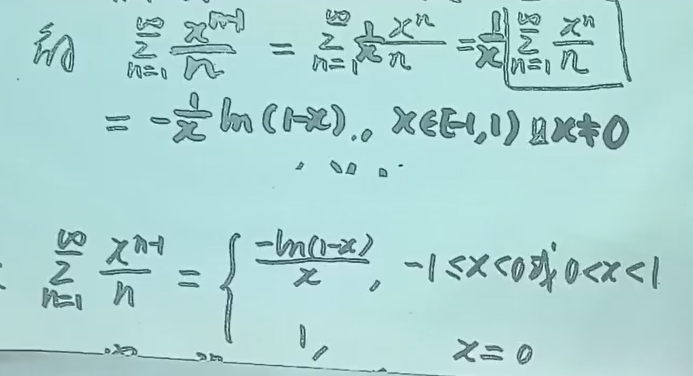 例 \sum_{n=1}^{\infty} \frac{x^{n-1}}{n} = \sum_{n=1}^{\infty} \frac{1}{x} \frac{x^n}{n} = \frac{1}{x} \sum_{n=1}^{\infty} \frac{x^n}{n}
= -\frac{1}{x} ln(1-x)., x∈[-1,1) 且x≠0
\sum_{n=1}^{\infty} \frac{x^{n-1}}{n} = \begin{cases} \frac{-ln(1-x)}{x}, & -1≤x<0或0<x<1 \\ 1, & x=0 \end{cases}